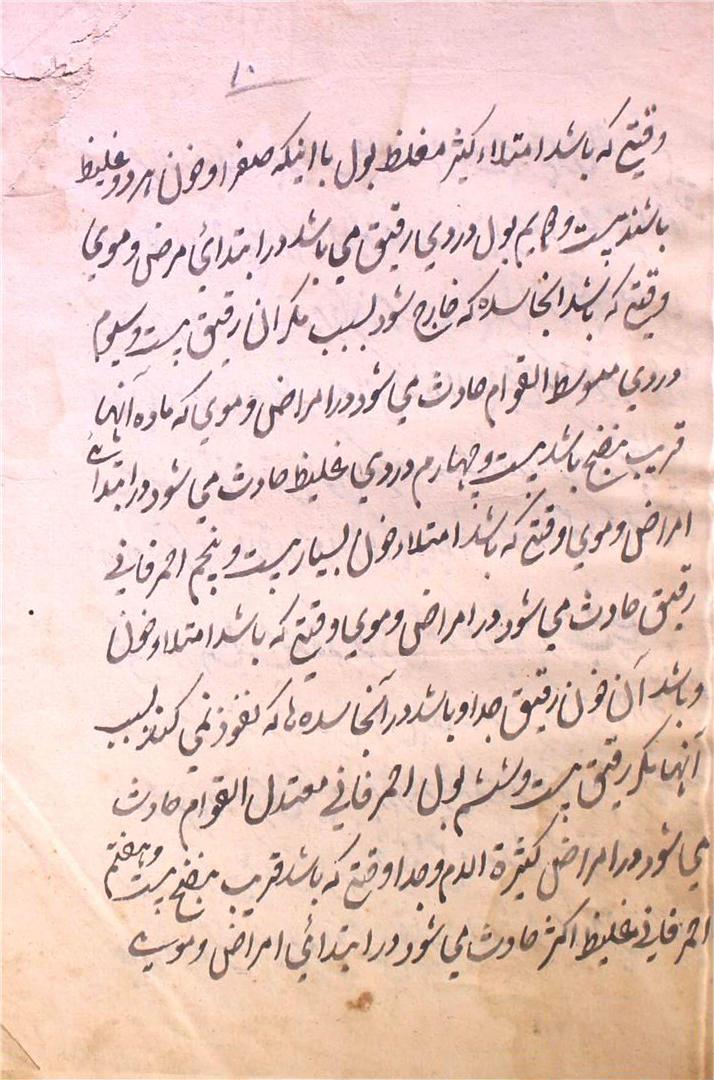 ۱۰
وقتیکه باشد امتلاء کثیر مغلظ بول با اینکه صفرا و خون هر دو غلیظ
باشند بیست و دویم بول وردی رقیق می باشد در ابتدائی مرض دموی
وقتیکه باشد انجا سده که خارج شود بسبب مگر آن رقیق بیست و سیوم
وردی متوسط القوام حادث می شود در امراض دموی که ماده آنها
قریب بنضج باشد بیست و چهارم وردی غلیظ حادث می شود در ابتدائے
امراض دموی وقتیکه باشد امتلاء خون بسیار بیست و پنجم احمر قانی
رقیق حادث می شود در امراض دموی وقتیکه باشد امتلاء خون
و باشد آن خون رقیق جدا و باشد در آنجا سده ها که نفوذ نمی کند بسبب
آنها مگر رقیق بیست و ششم بول احمر قانی معتدل القوام حادث
می شود در امراض کثیرة الدم جدا وقتیکه باشد قریب بنضج بیست و هفتم
احمر قانی غلیظ اکثر حادث می شود در ابتدائی امراض دمویے